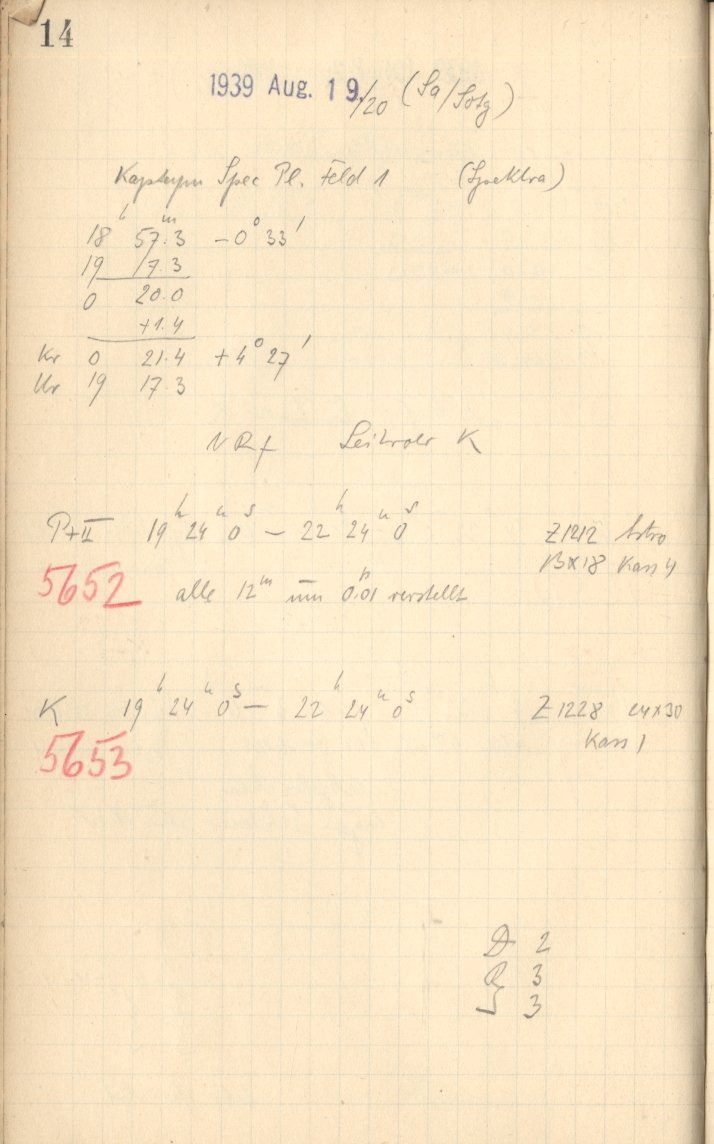 14
1939 Aug. 19./20 (Sa/Sotg)
Kapteyn Spec Pl. Feld 1 (Spektra)
18h 57m.3 -0° 33'
19 17.3
0 20.0
+1.4
Kr 0 21.4 +4° 27'
Ur 19 17.3
NRf Leitrohr K
P+II 19h 24m 0s — 22h 24m 0s Z1212 Astro
13x18 Kass 4
5652 alle 12m um 0.01 verstellt
K 19h 24m 0s — 22h 24m 0s Z1228 24x30
Kass 1
5653
D 2
R 3
S 3